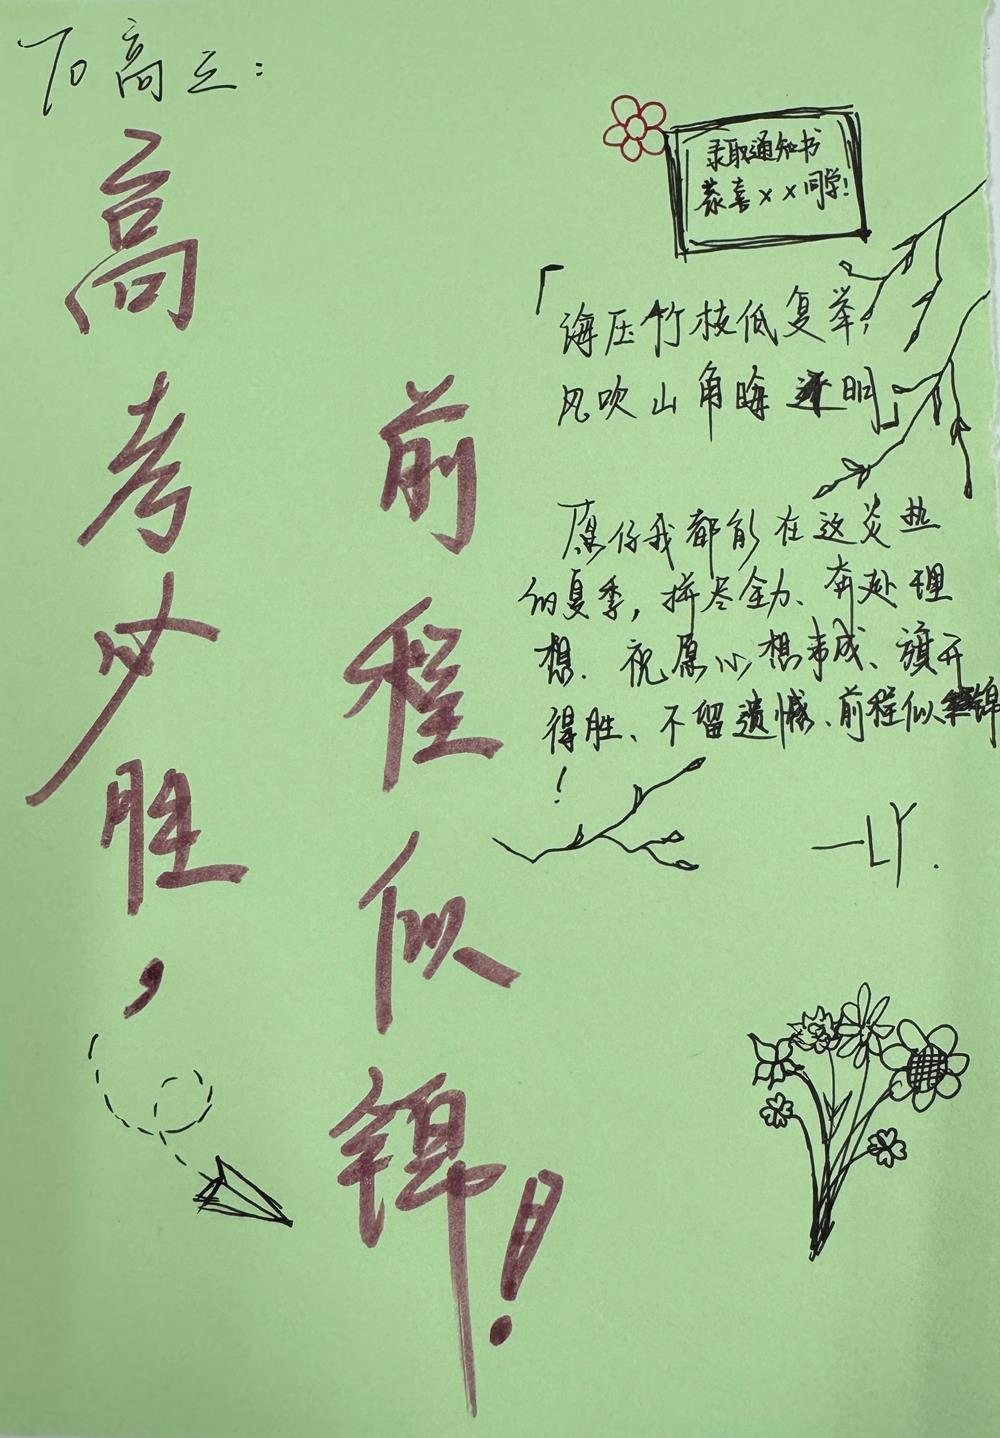 To 高三:
高考必胜,
前程似锦!
录取通知书
恭喜××同学!
「海压竹枝低复举,
风吹山角晦还明」
愿你我都能在这炎热
的夏季,拼尽全力、奔赴理
想. 祝愿心想事成、旗开
得胜、不留遗憾、前程似锦
!
—LY.